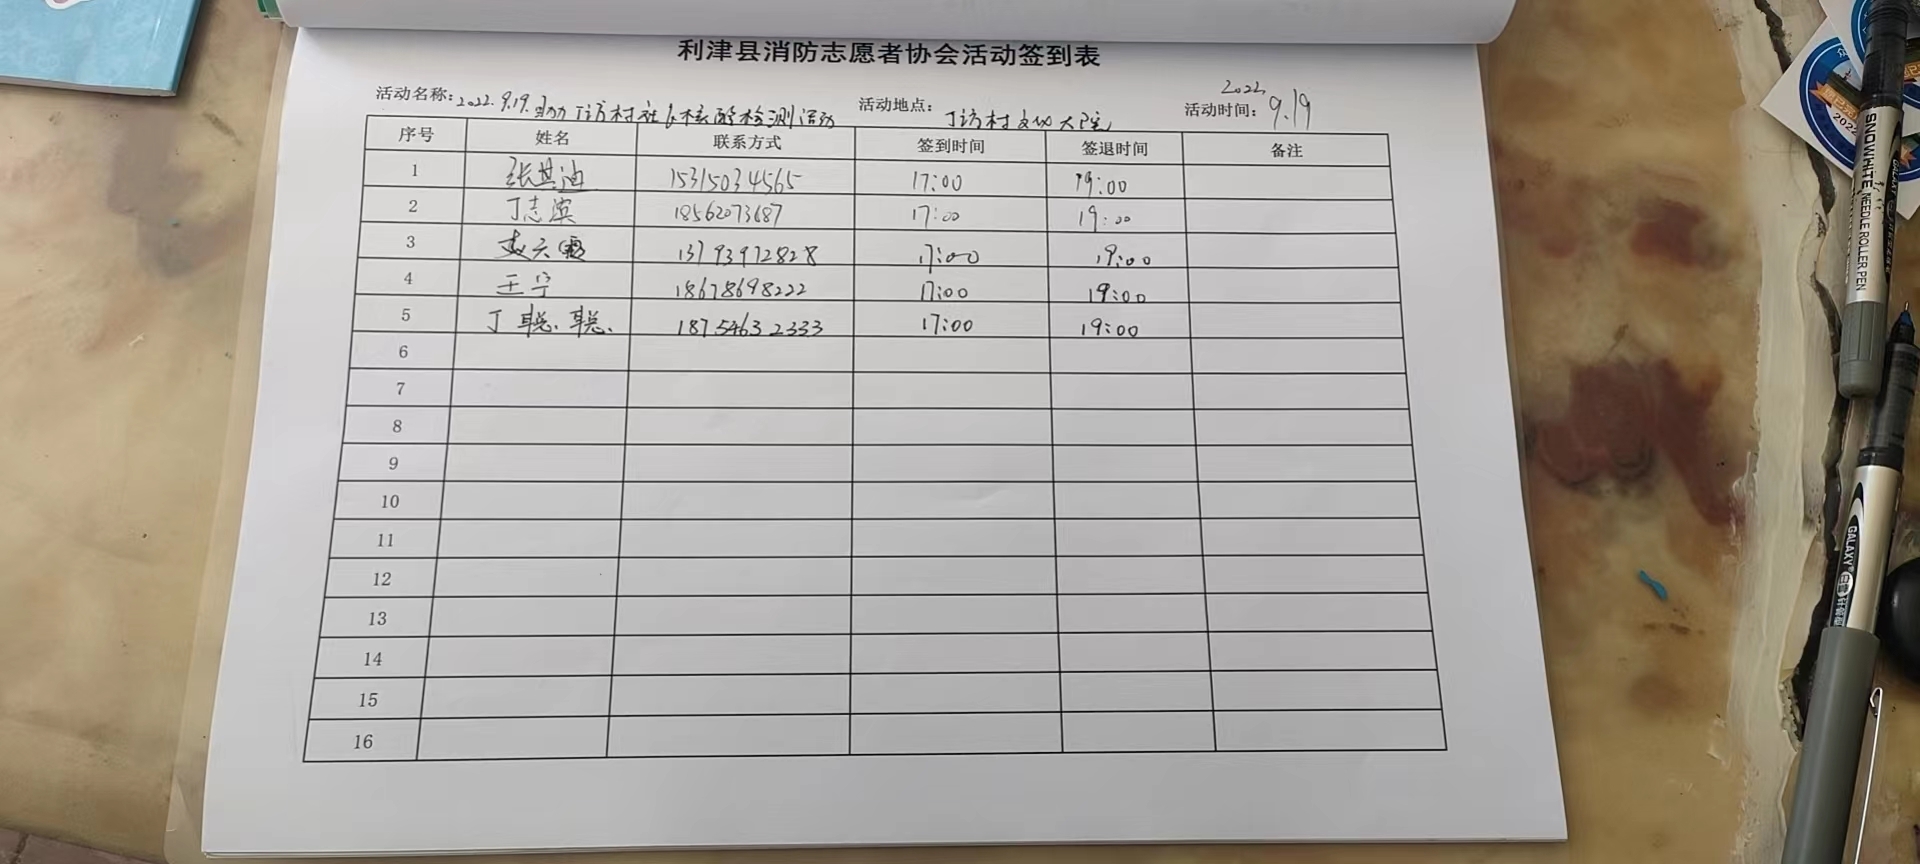 利津县消防志愿者协会活动签到表
活动名称: 2022.9.19.协助丁访村社区核酸检测活动 活动地点: 丁访村文化大院 活动时间: 2022.9.19
序号 姓名 联系方式 签到时间 签退时间 备注
1 张其迪 15315034565 17:00 19:00
2 丁志滨 18562073687 17:00 19:00
3 赵云霞 13793972828 17:00 19:00
4 王宁 18678698222 17:00 19:00
5 丁聪聪 18754632333 17:00 19:00
6
7
8
9
10
11
12
13
14
15
16
SNOWHITE NEEDLE ROLLER PEN
GALAXY
2022